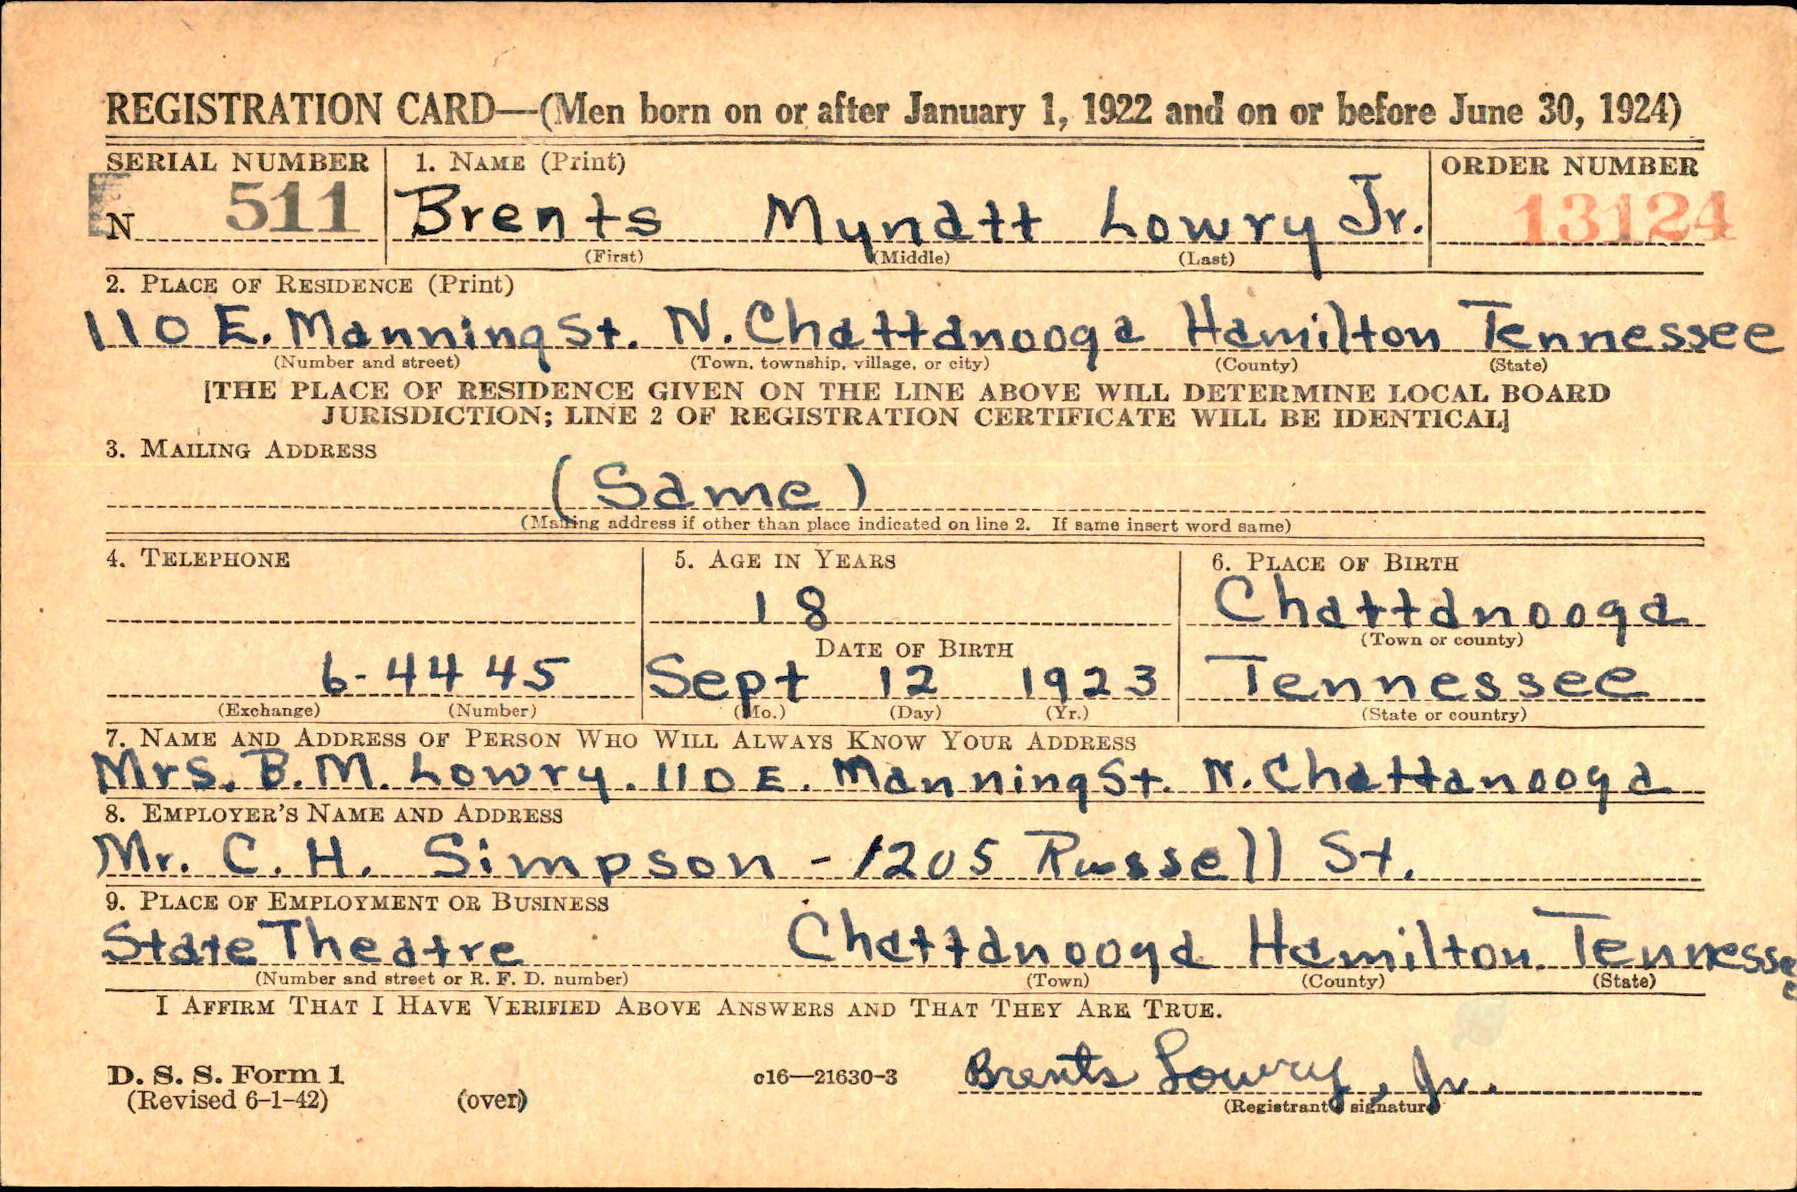 REGISTRATION CARD—(Men born on or after January 1, 1922 and on or before June 30, 1924)
SERIAL NUMBER 1. NAME (Print) ORDER NUMBER
N 511 Brents Myndtt Lowry Jr. 13124
(First) (Middle) (Last)
2. PLACE OF RESIDENCE (Print)
110 E. Manning St. N. Chattanooga Hamilton Tennessee
(Number and street) (Town, township, village, or city) (County) (State)
[THE PLACE OF RESIDENCE GIVEN ON THE LINE ABOVE WILL DETERMINE LOCAL BOARD
JURISDICTION; LINE 2 OF REGISTRATION CERTIFICATE WILL BE IDENTICAL]
3. MAILING ADDRESS
(Same)
(Mailing address if other than place indicated on line 2. If same insert word same)
4. TELEPHONE 5. AGE IN YEARS 6. PLACE OF BIRTH
18 Chattanooga
DATE OF BIRTH (Town or county)
6-4445 Sept 12 1923 Tennessee
(Exchange) (Number) (Mo.) (Day) (Yr.) (State or country)
7. NAME AND ADDRESS OF PERSON WHO WILL ALWAYS KNOW YOUR ADDRESS
Mrs. B. M. Lowry. 110 E. Manning St. N. Chattanooga
8. EMPLOYER'S NAME AND ADDRESS
Mr. C. H. Simpson - 1205 Russell St.
9. PLACE OF EMPLOYMENT OR BUSINESS
State Theatre Chattanooga Hamilton. Tennessee
(Number and street or R. F. D. number) (Town) (County) (State)
I AFFIRM THAT I HAVE VERIFIED ABOVE ANSWERS AND THAT THEY ARE TRUE.
D. S. S. Form 1
(Revised 6-1-42) (over) c16—21630-3 Brents Lowry, Jr.
(Registrant's signature)